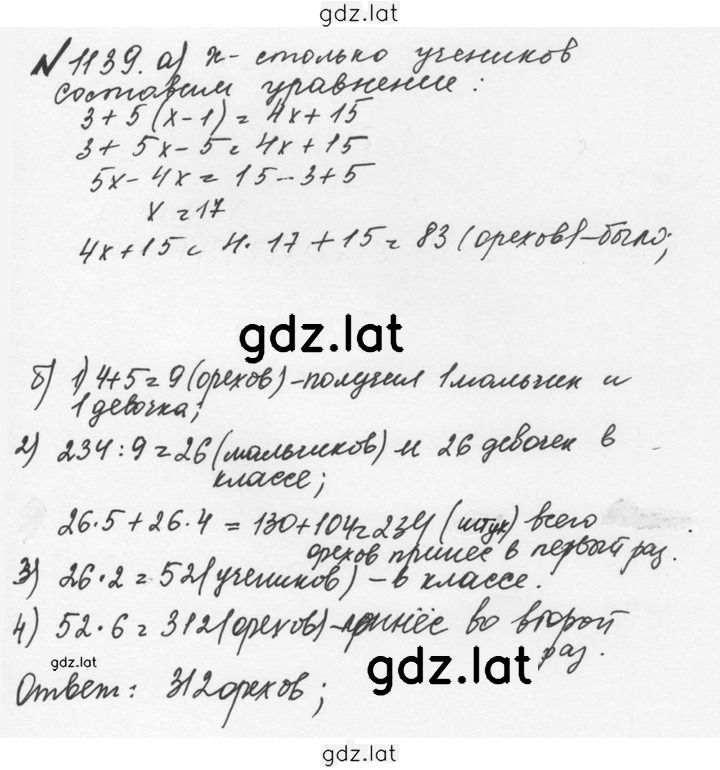 gdz.lat
№ 1139. а) x - столько учеников
составим уравнение:
3 + 5(x - 1) = 4x + 15
3 + 5x - 5 = 4x + 15
5x - 4x = 15 - 3 + 5
x = 17
4x + 15 = 4 · 17 + 15 = 83 (орехов) - было;
gdz.lat
б) 1) 4 + 5 = 9 (орехов) - получил 1 мальчик и
1 девочка;
2) 234 : 9 = 26 (мальчиков) и 26 девочек в
классе;
26 · 5 + 26 · 4 = 130 + 104 = 234 (штук) всего
орехов принёс в первый раз.
3) 26 · 2 = 52 (учеников) - в классе.
4) 52 · 6 = 312 (орехов) - принёс во второй
раз.
gdz.lat
gdz.lat
Ответ: 312 орехов;
gdz.lat